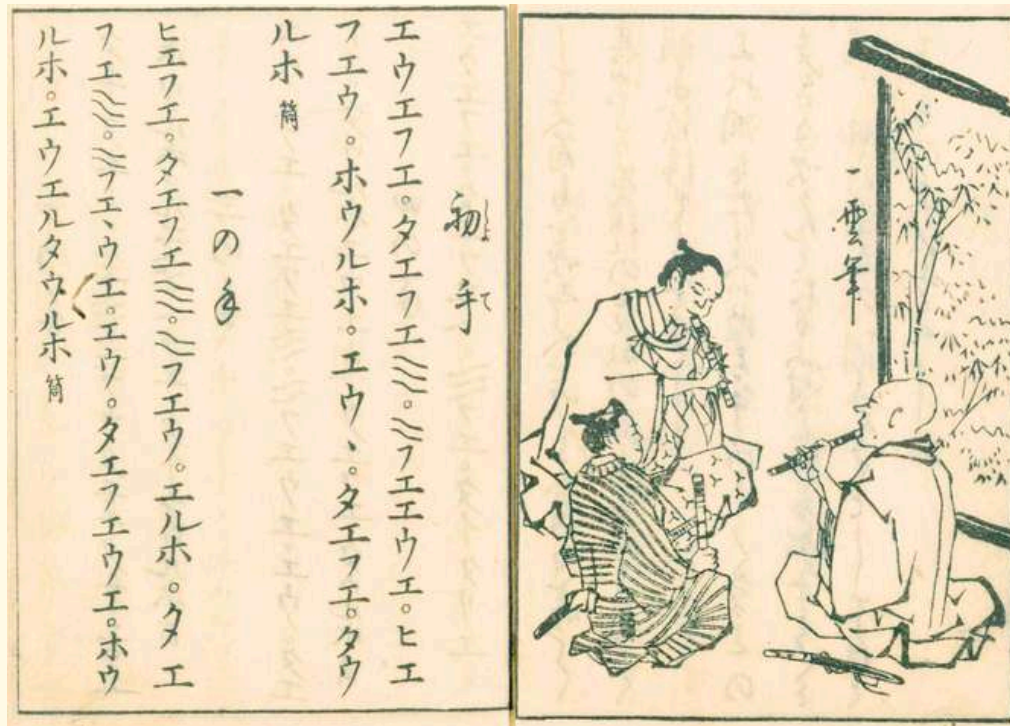 一雲筆
初手
エウエフエ。タエフエ〳〵〳〵。〳〵フエエウエ。ヒエ
フエウ。ホウルホ。エウ、。タエフエ。タウ
ルホ 筒
一の手
ヒエフエ。タエフエ〳〵〳〵。〳〵フエウ。エルホ。タエ
フエ〳〵〳〵。〳〵フエ、ウエ。エウ。タエフエウエ。ホウ
ルホ。エウエルタウルホ 筒